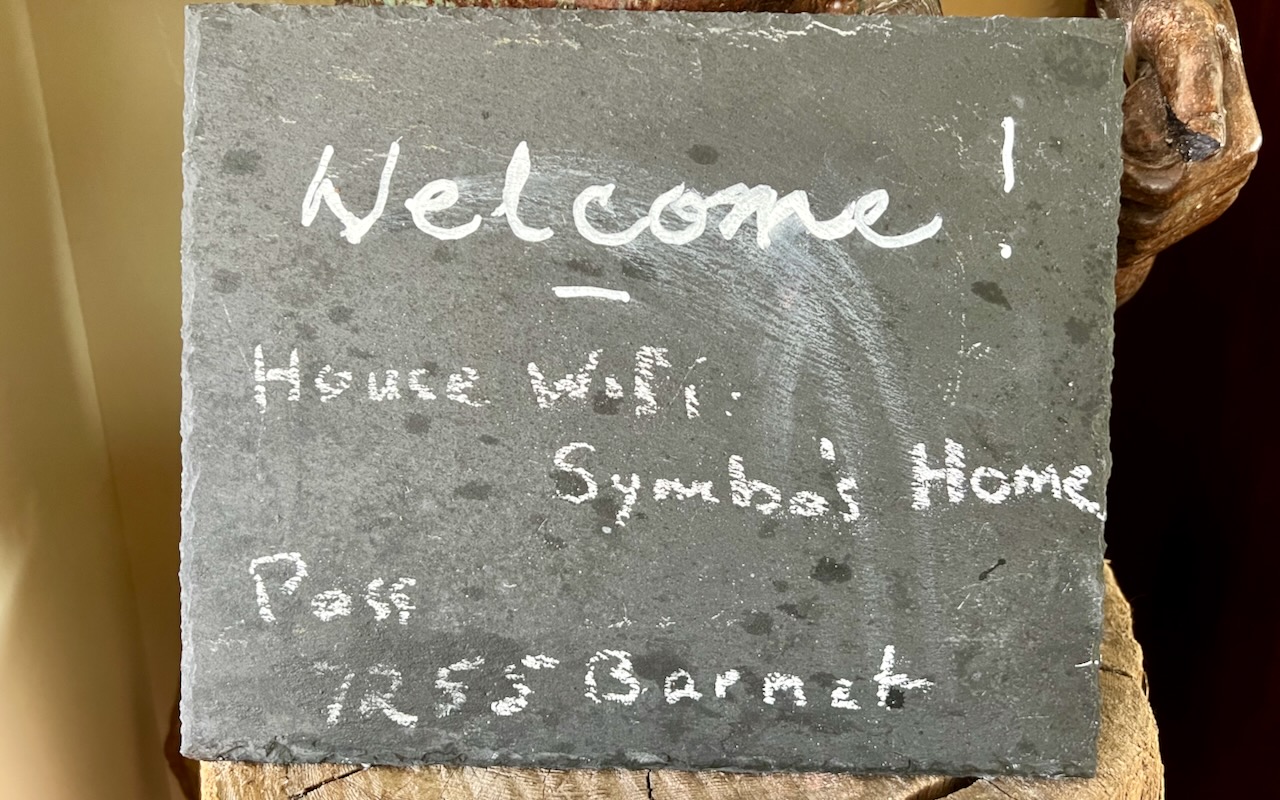 Welcome!
House WiFi:
Symba's Home
Pass
1255 Barnet